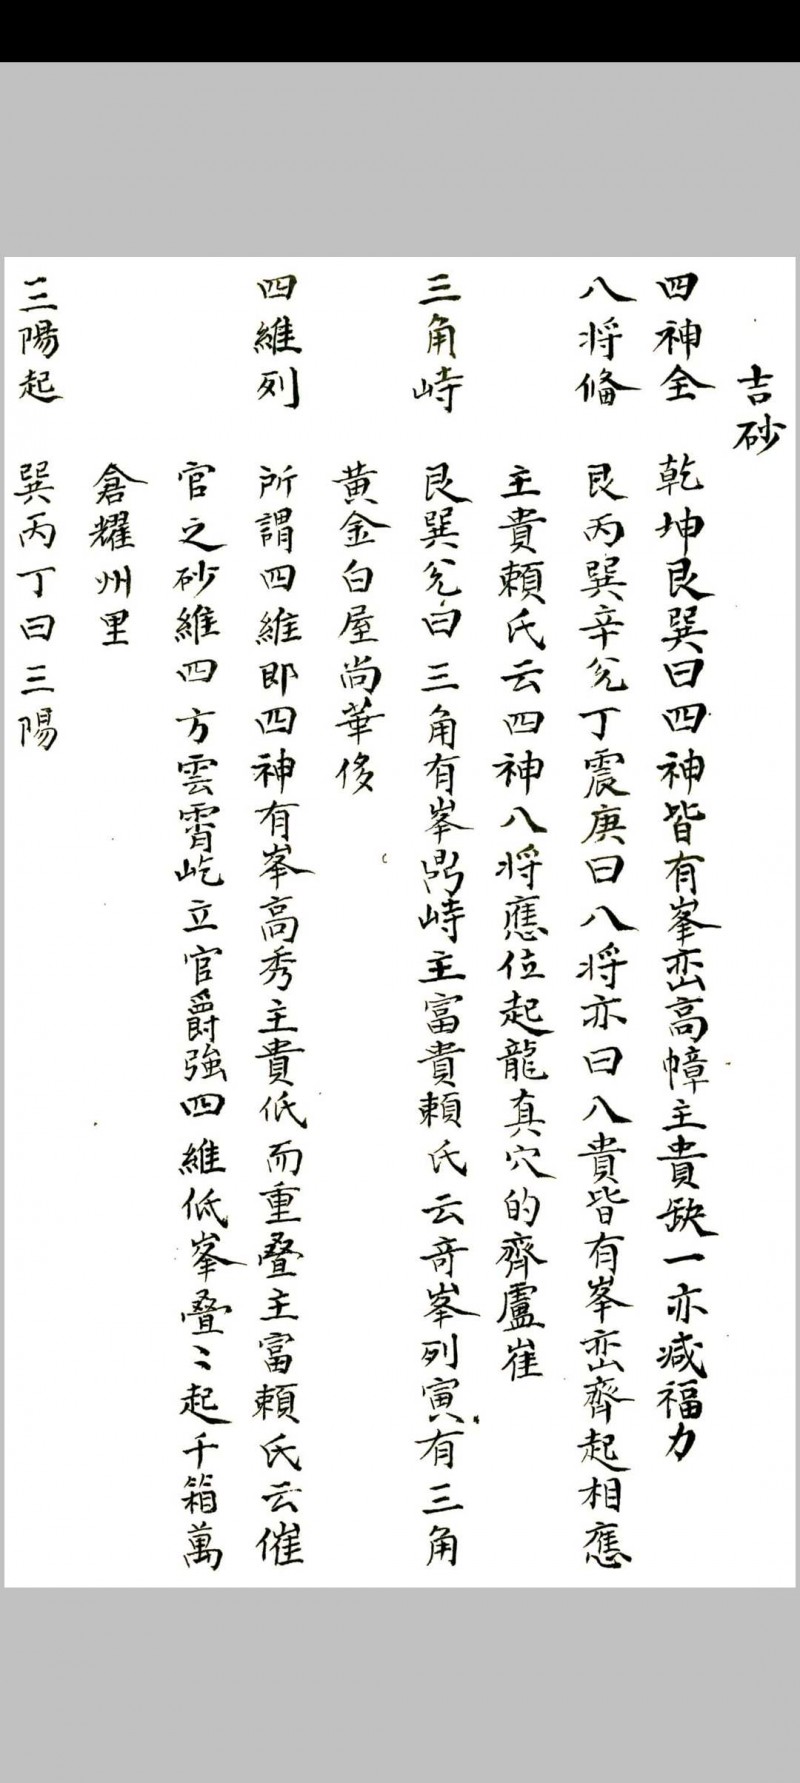 吉砂
四神全　乾坤艮巽曰四神皆有峯巒高幛主貴缺一亦减福力
八将偹　艮丙巽辛兊丁震庚曰八将亦曰八貴皆有峯巒齊起相應
主貴頼氏云四神八将應位起龍真穴的齊盧崔
三角峙　艮巽兊曰三角有峯鼎峙主富貴頼氏云竒峯列寅有三角
黄金白屋尚華侈
四維列　所謂四維即四神有峯高秀主貴低而重疊主富頼氏云催
官之砂維四方雲霄屹立官爵強四維低峯疊〻起千箱萬
倉耀州里
三陽起　巽丙丁曰三陽